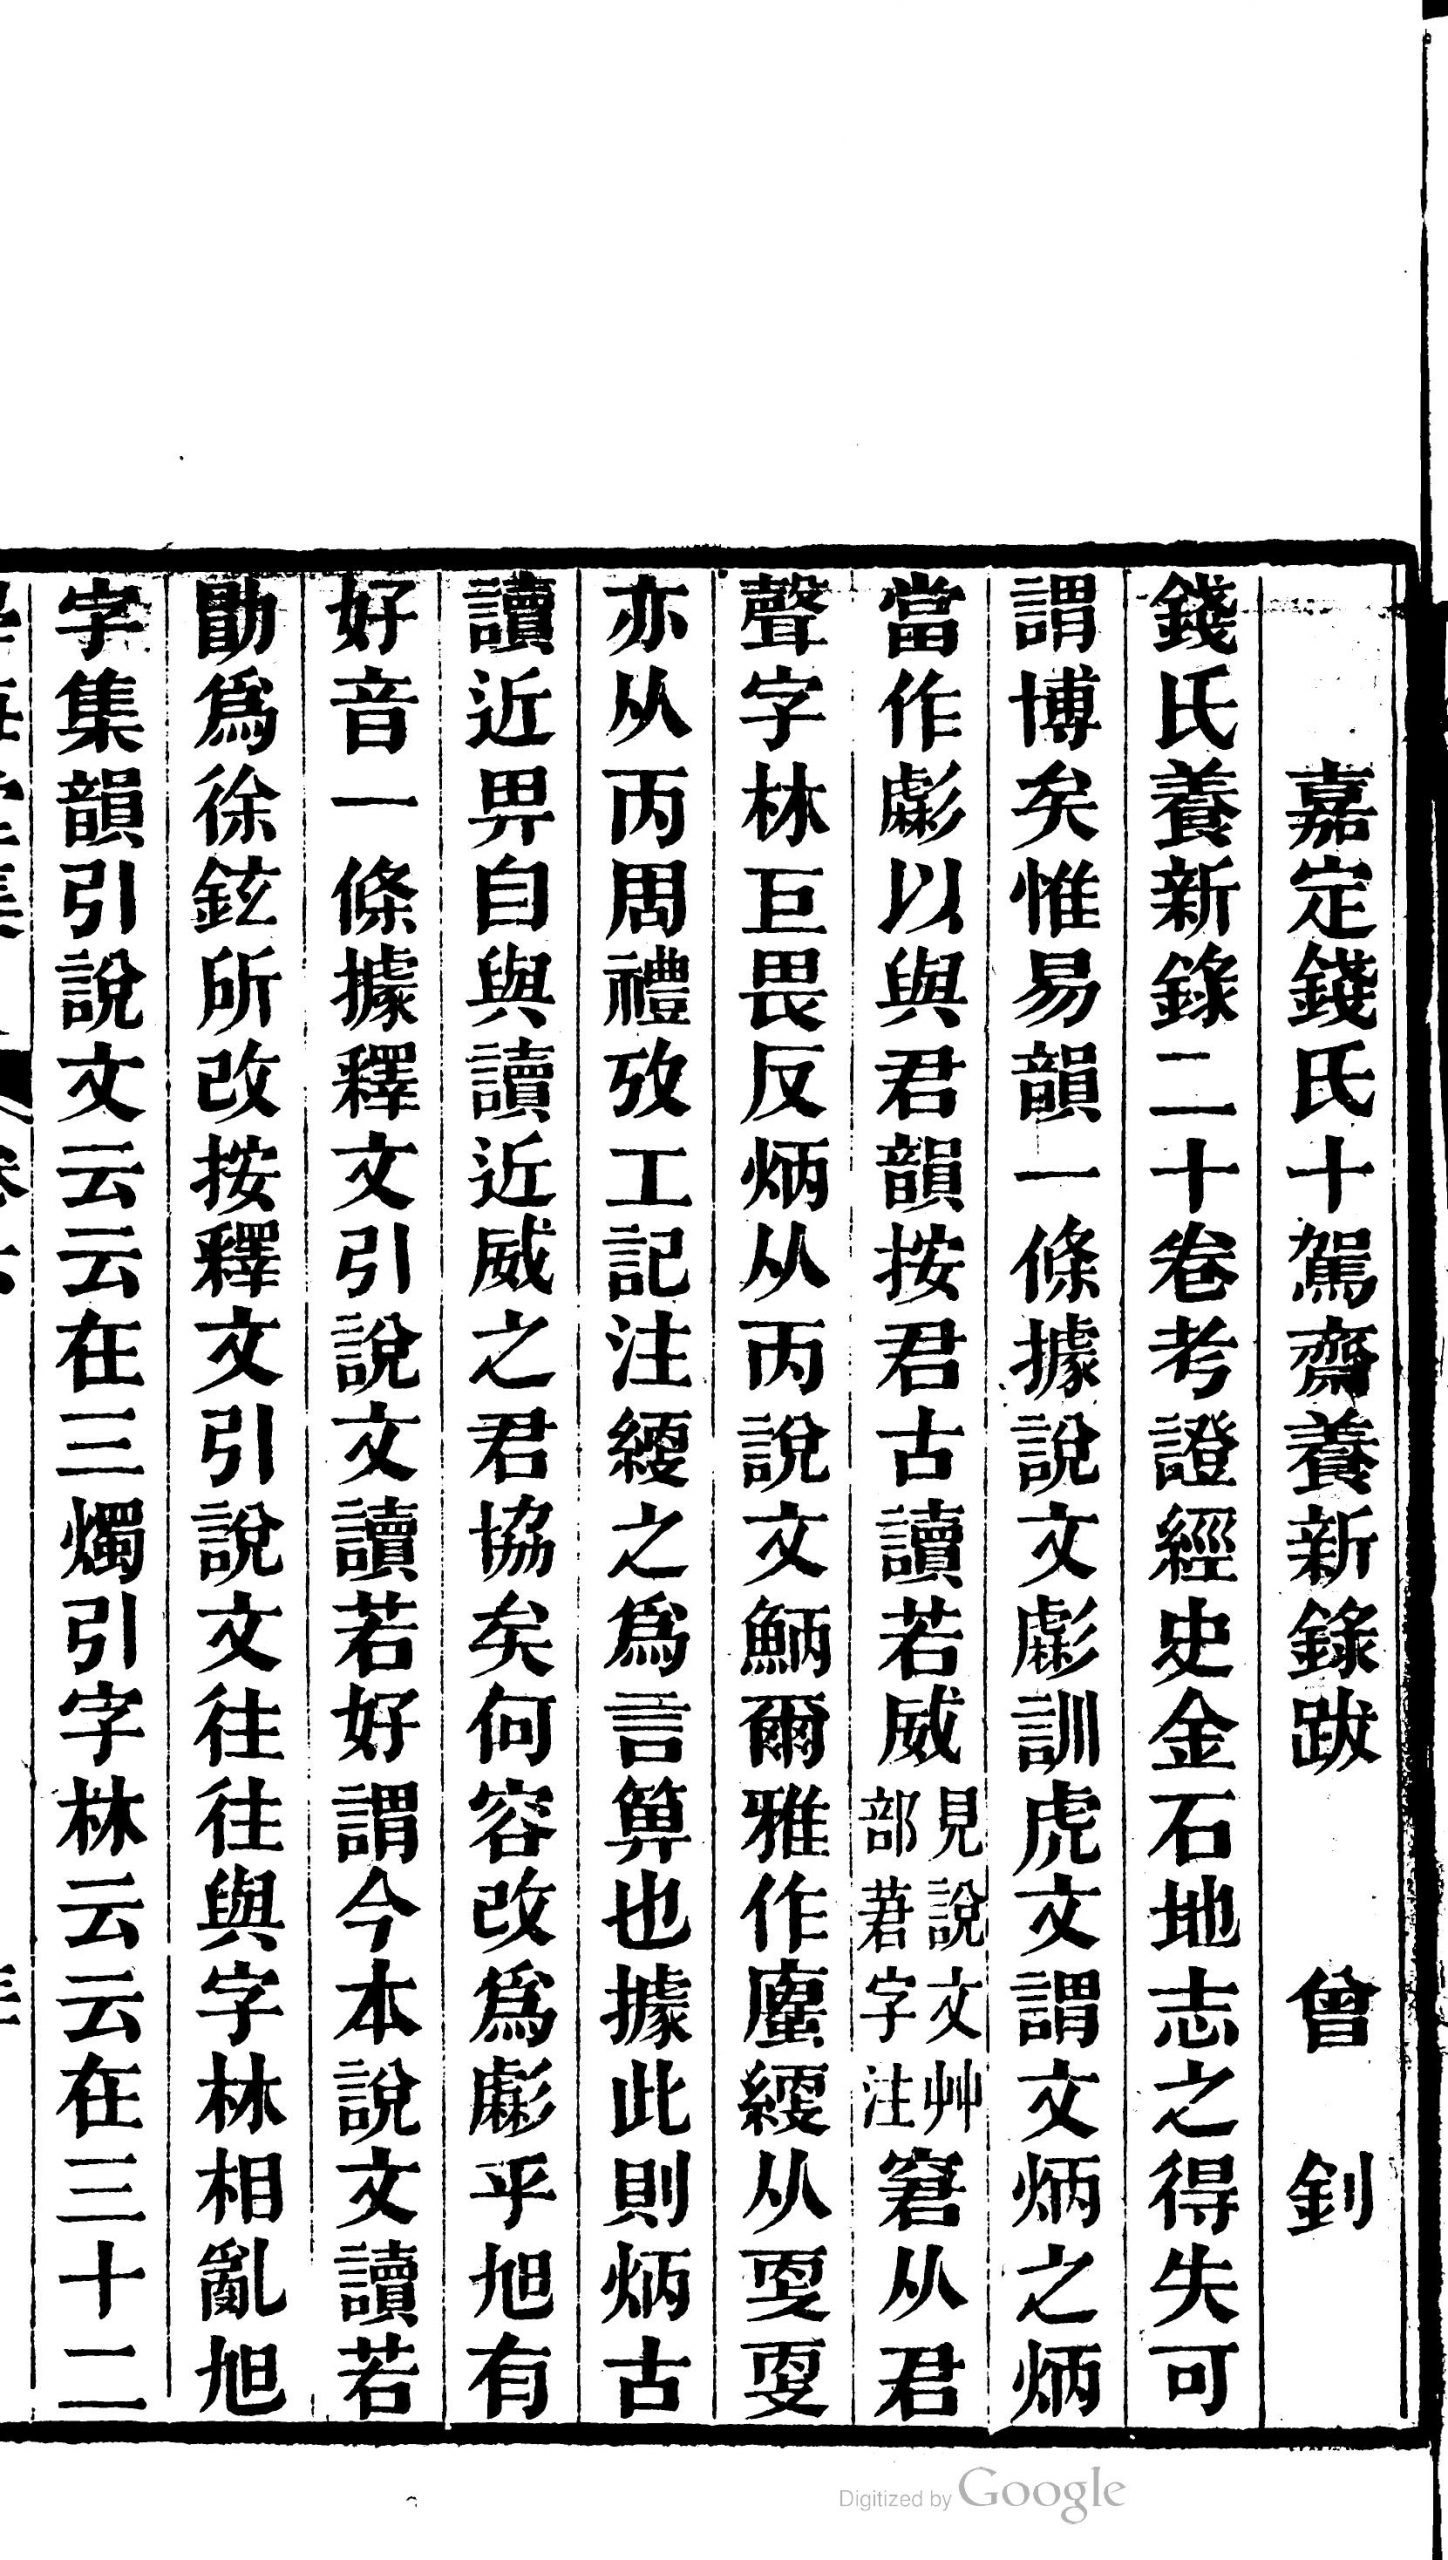 嘉定錢氏十駕齋養新錄跋　曾　釗
錢氏養新錄二十卷考證經史金石地志之得失可
謂博矣惟易韻一條據說文彪訓虎文謂文炳之炳
當作彪以與君韻按君古讀若威見說文艸部莙字注窘从君
聲字林巨畏反炳从丙說文鮞爾雅作蠯緶从㪅㪅
亦从丙周禮攷工記注緶之爲言箅也據此則炳古
讀近畀自與讀近威之君協矣何容改爲彪乎旭有
好音一條據釋文引說文讀若好謂今本說文讀若
勖爲徐鉉所改按釋文引說文往往與字林相亂旭
字集韻引說文云云在三燭引字林云云在三十二
Digitized by Google